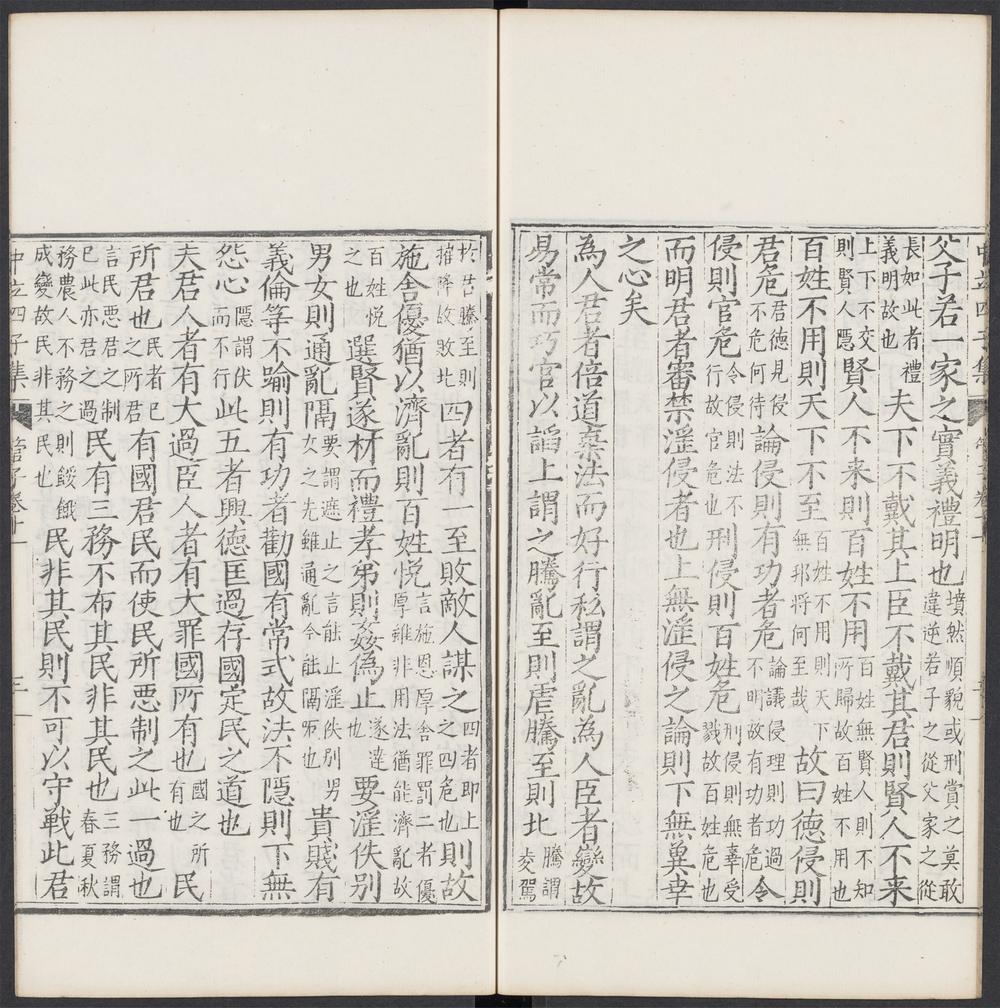 中立四子集 管子卷十一
父子若一家之實義禮明也墳然順貌或刑賞之莫敢違逆若子之從父家之從
長如此者禮義明故也夫下不戴其上臣不戴其君則賢人不来
上下不交則賢人隱賢人不来則百姓不用百姓無賢人則不知所歸故百姓不用也
百姓不用則天下不至百姓不用則天下無邪將何至哉故曰徳侵則
君危君徳見侵不危何待論侵則有功者危論議侵理則功過不明故有功者危令
侵則官危令侵則法不行故官危也刑侵則百姓危刑侵則無辜受戮故百姓危也
而明君者審禁滛侵者也上無滛侵之論則下無兾幸
之心矣
為人君者倍道棄法而好行私謂之亂為人臣者變故
易常而巧官以謟上謂之騰亂至則虐騰至則北騰謂夌駕
於君騰至則摧降故敗北四者有一至敗敵人謀之四者即上之四危也則故
施舍優猶以濟亂則百姓悅言施恩厚舍罪罰二者優厚雖非用法猶能濟亂故
百姓悅之也選賢遂材而禮孝弟則姦偽止遂達也要滛佚別
男女則通亂隔要謂遮止之言能止滛佚別男女之先雖通亂今能隔而也貴賤有
義倫等不踰則有功者勸國有常式故法不隱則下無
怨心隱謂伏而不行此五者興徳匡過存國定民之道也
夫君人者有大過臣人者有大罪國所有也國之所有也民
所君也民者已之所君有國君民而使民所惡制之此一過也
言民惡君之制已此亦君之過民有三務不布其民非其民也三務謂春夏秋
務農人不務之則餒餓成變故民非其民也民非其民則不可以守戰此君
中立四子集 管子卷十一 三